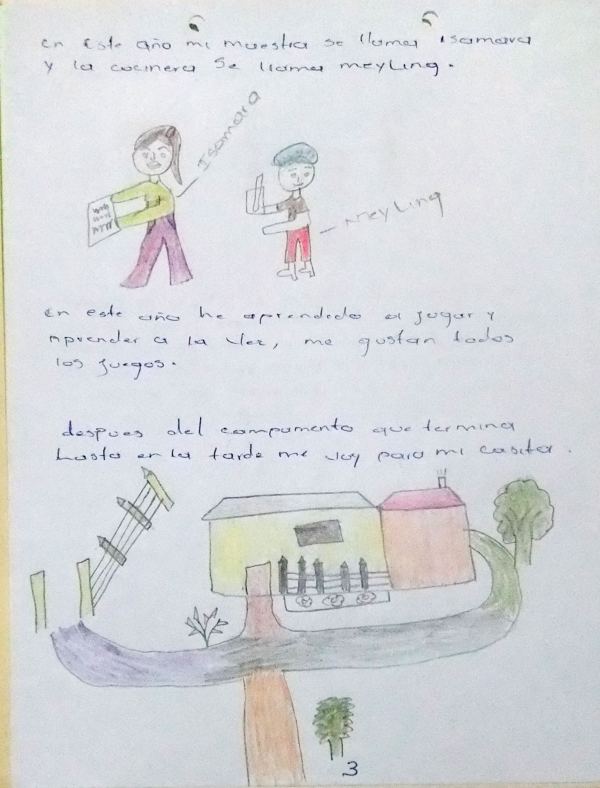 en Este año mi maestra se llama isamara
y la cocinera Se llama meyling.
Isamara
Meyling
En este año he aprendido a jugar y
aprender a la vez, me gustan todos
los juegos.
despues del campamento que termina
hasta en la tarde me voy para mi casita.
3